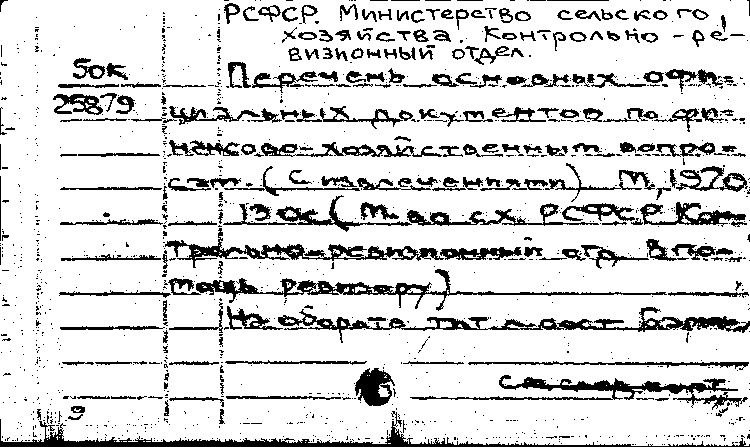 РСФСР. Министерство сельского
хозяйства. Контрольно-ре-
визионный отдел.
50К Перечень основных офи=
25879 циальных документов по фи=
нансово-хозяйственным вопро=
сам. (С извлечениями) М., 1970
130с (М-во с.х. РСФСР Кон-
трольно-ревизионный отд. В по-
мощь ревизору)
На обороте тит л. сост
см. след. карт
9